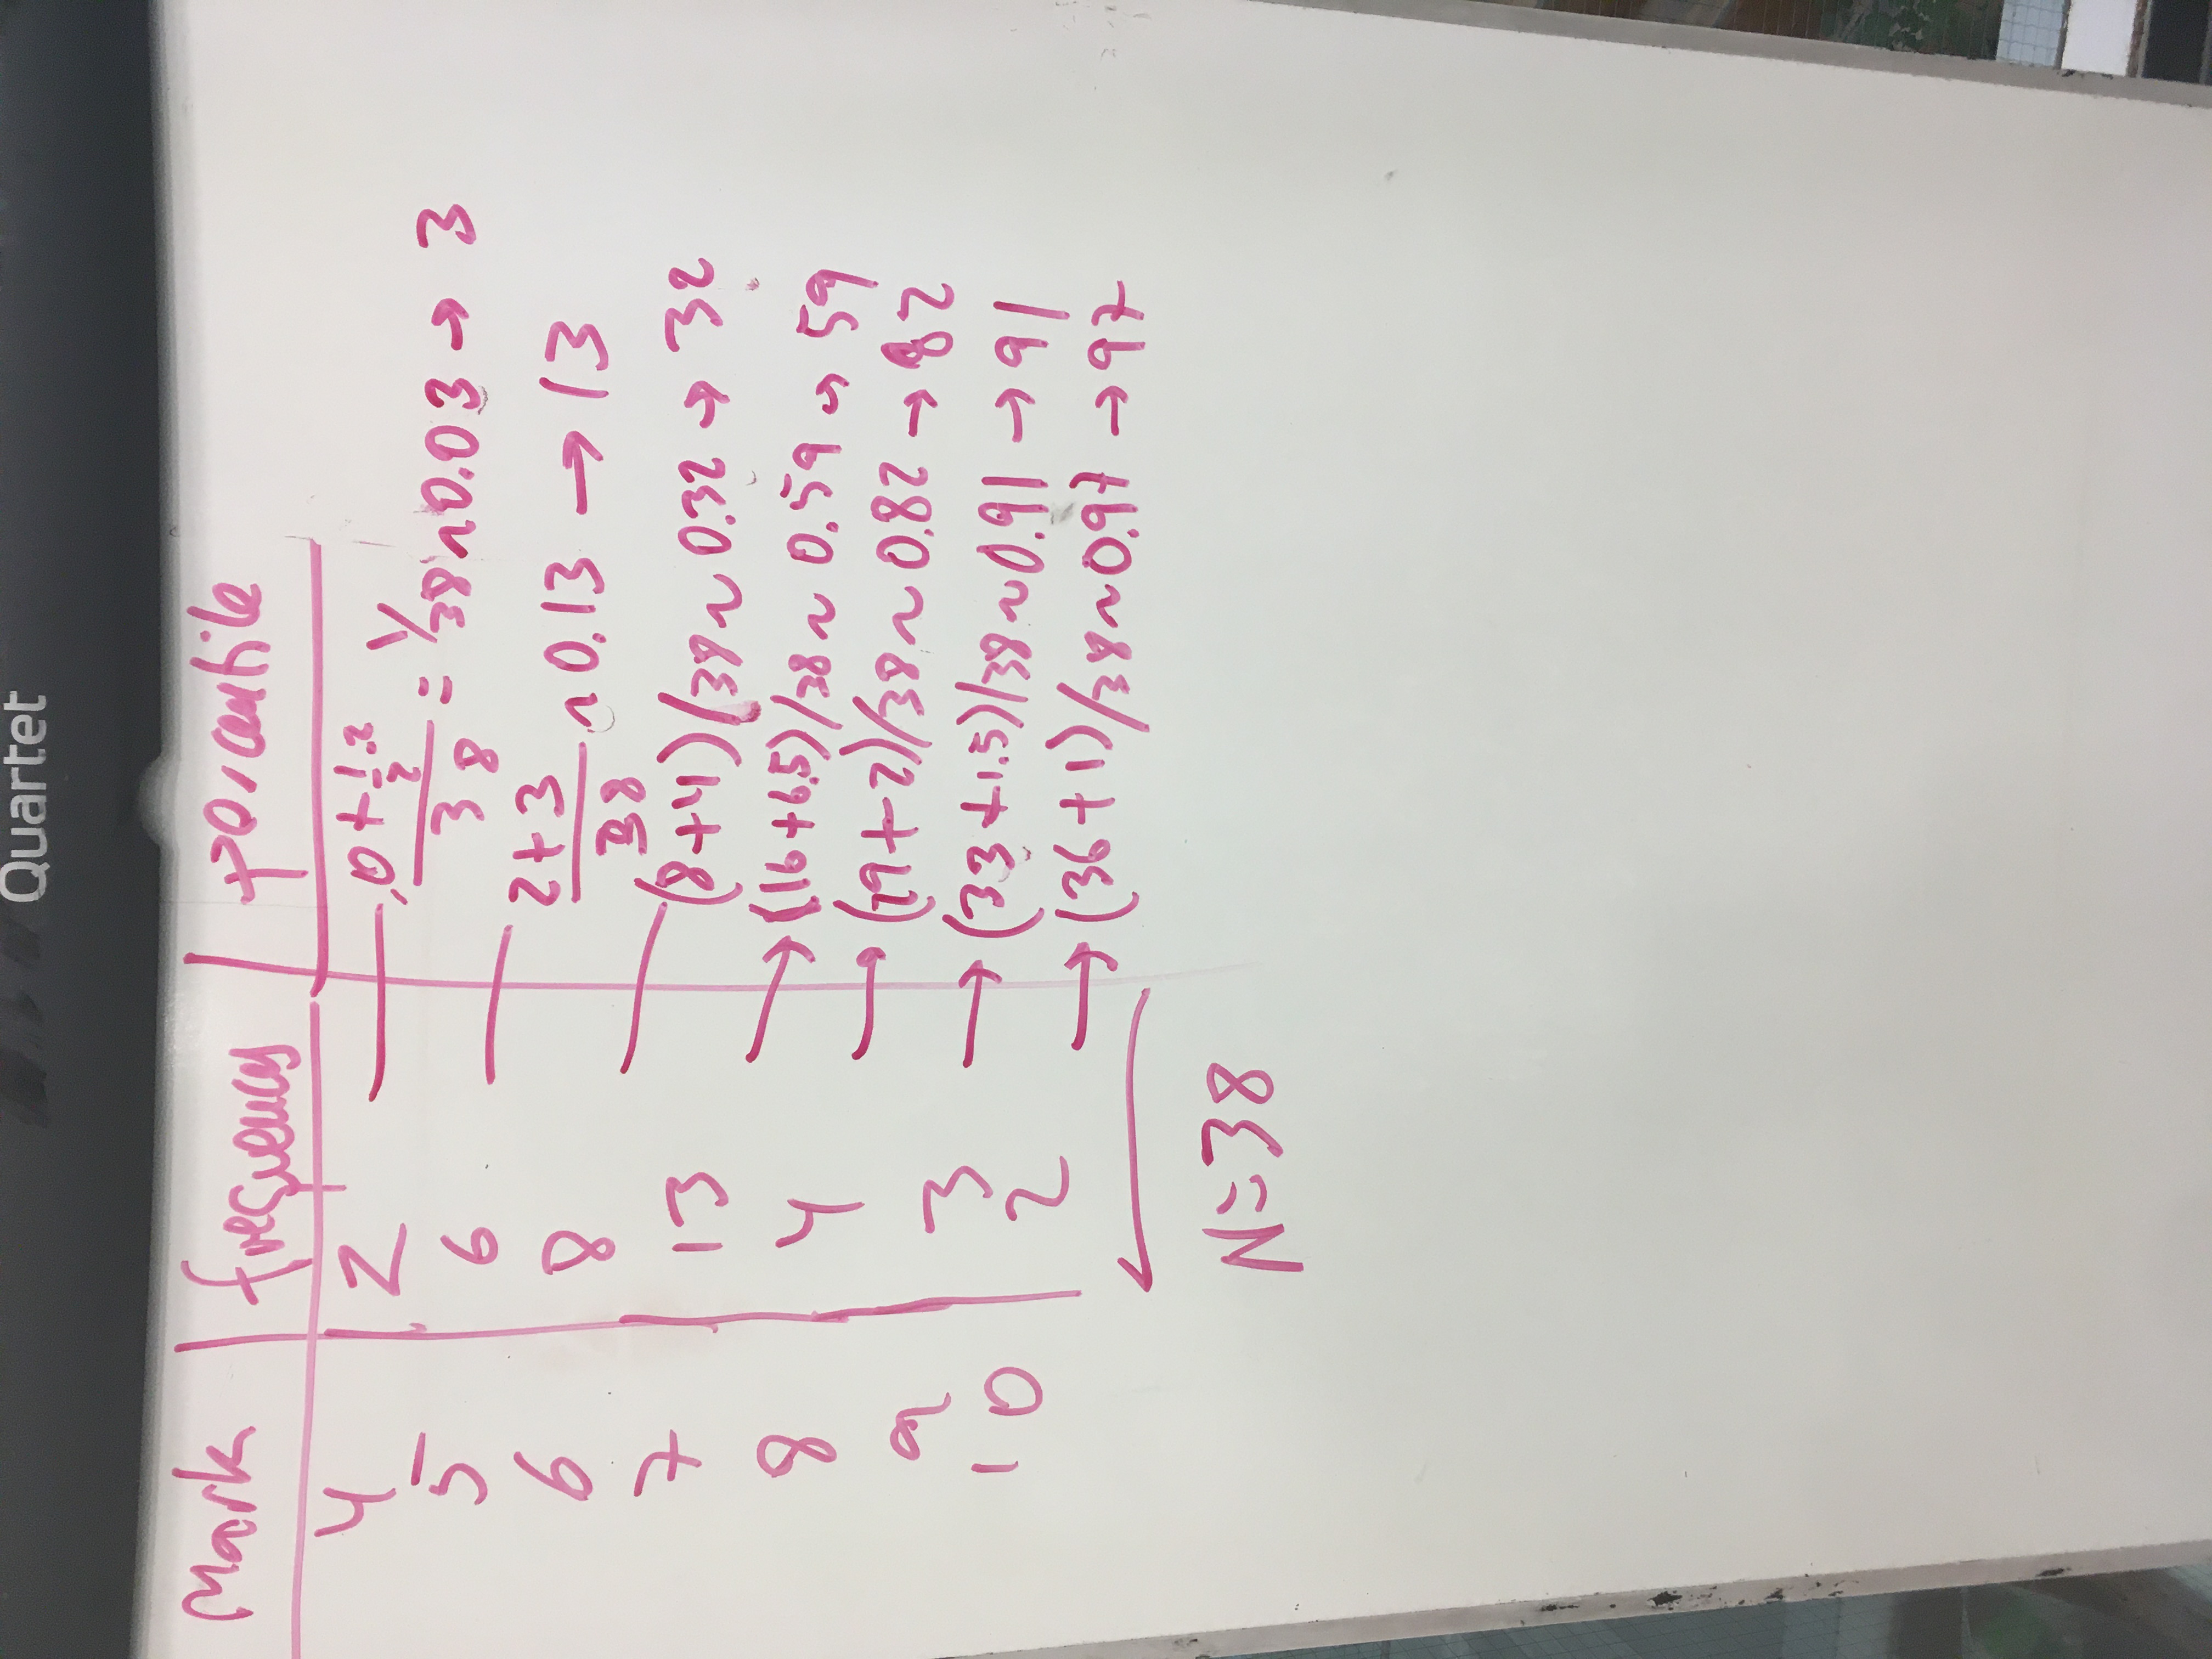 Quartet
Mark | frequency | percentile
4 | 2 — 0 + 1/2·2 / 38 = 1/38 ~ 0.03 → 3
5 | 6 — 2+3 / 38 ~ 0.13 → 13
6 | 8 — (8+4)/38 ~ 0.32 → 32
7 | 13 → (16+6.5)/38 ~ 0.59 → 59
8 | 4 → (29+2)/38 ~ 0.82 → 82
9 | 3 → (33+1.5)/38 ~ 0.91 → 91
10 | 2 → (36+1)/38 ~ 0.97 → 97
N=38